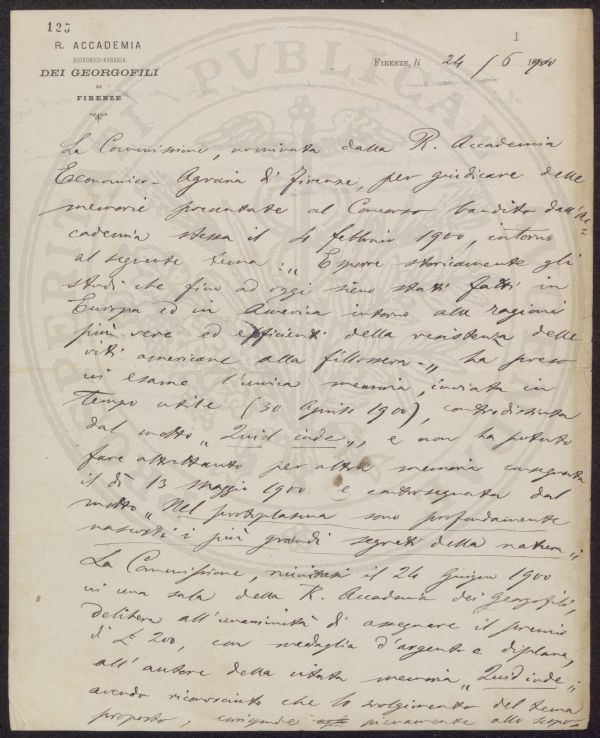 125
1
R. ACCADEMIA
ECONOMICO-AGRARIA
DEI GEORGOFILI
DI
FIRENZE
FIRENZE, li 24/6 1900
La Commissione, nominata dalla R. Accademia
Economico-Agraria di Firenze, per giudicare delle
memorie presentate al Concorso bandito dall'Ac=
cademia stessa il 4 febbraio 1900, intorno
al seguente tema: „Esporre storicamente gli
studi che fino ad oggi sieno stati fatti in
Europa ed in America intorno alle ragioni
più vere ed efficienti della resistenza delle
viti americane alla fillossera„ ha preso
in esame l'unica memoria, inviata in
tempo utile (30 Aprile 1900), controdistinta
dal motto „Quid inde„, e non ha potuto
fare altrettanto per altra memoria consegnata
il dì 13 Maggio 1900 e controsegnata dal
motto „Nel protoplasma sono profondamente
nascosti i più grandi segreti della natura„
La Commissione, riunitasi il 24 Giugno 1900
in una sala della R. Accademia dei Georgofili,
delibera all'unanimità di assegnare il premio
di £ 200, con medaglia d'argento e diploma,
all'autore della citata memoria „Quid inde„;
avendo riconosciuto che lo svolgimento del tema
proposto, corrisponde pienamente allo scopo